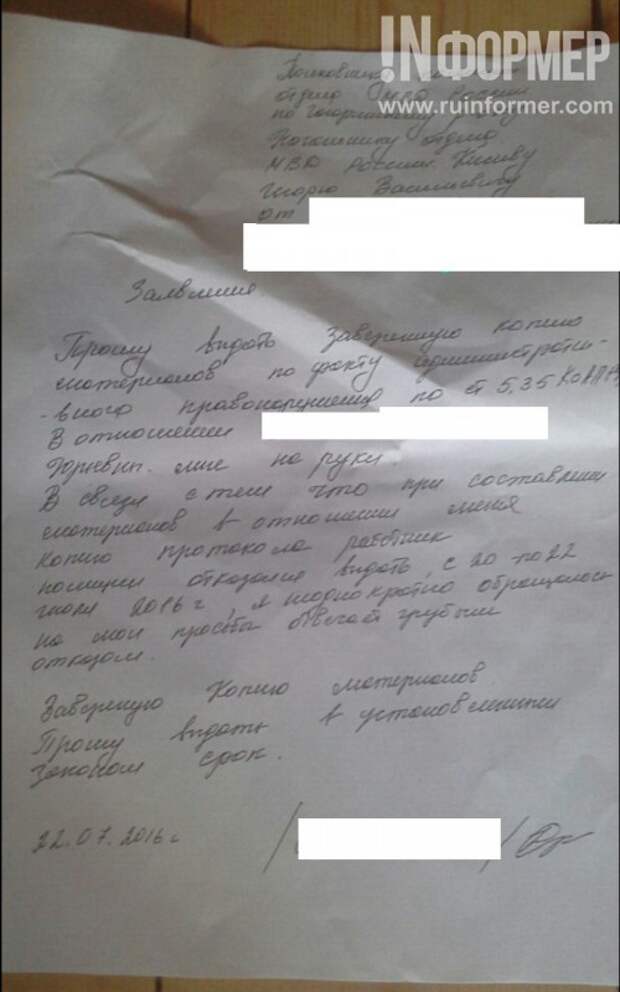 !NФОРМЕР
www.ruinformer.com
Полковнику
отдела МВД России
по
Начальнику отдела
МВД России
Игорю Васильевичу
от
Заявление
Прошу выдать заверенную копию
материалов по факту администрати-
-вного правонарушения по ст 5.35 КоАП РФ
В отношении
мне на руки.
В связи с тем что при составлении
материалов в отношении меня
Копию протокола работник
полиции отказался выдать, с 20 -по 22
июля 2016 г, я неоднократно обращалась
на мои просьбы отвечает грубым
отказом.
Заверенную Копию материалов
Прошу выдать в установленный
законом срок.
22.07.2016 г